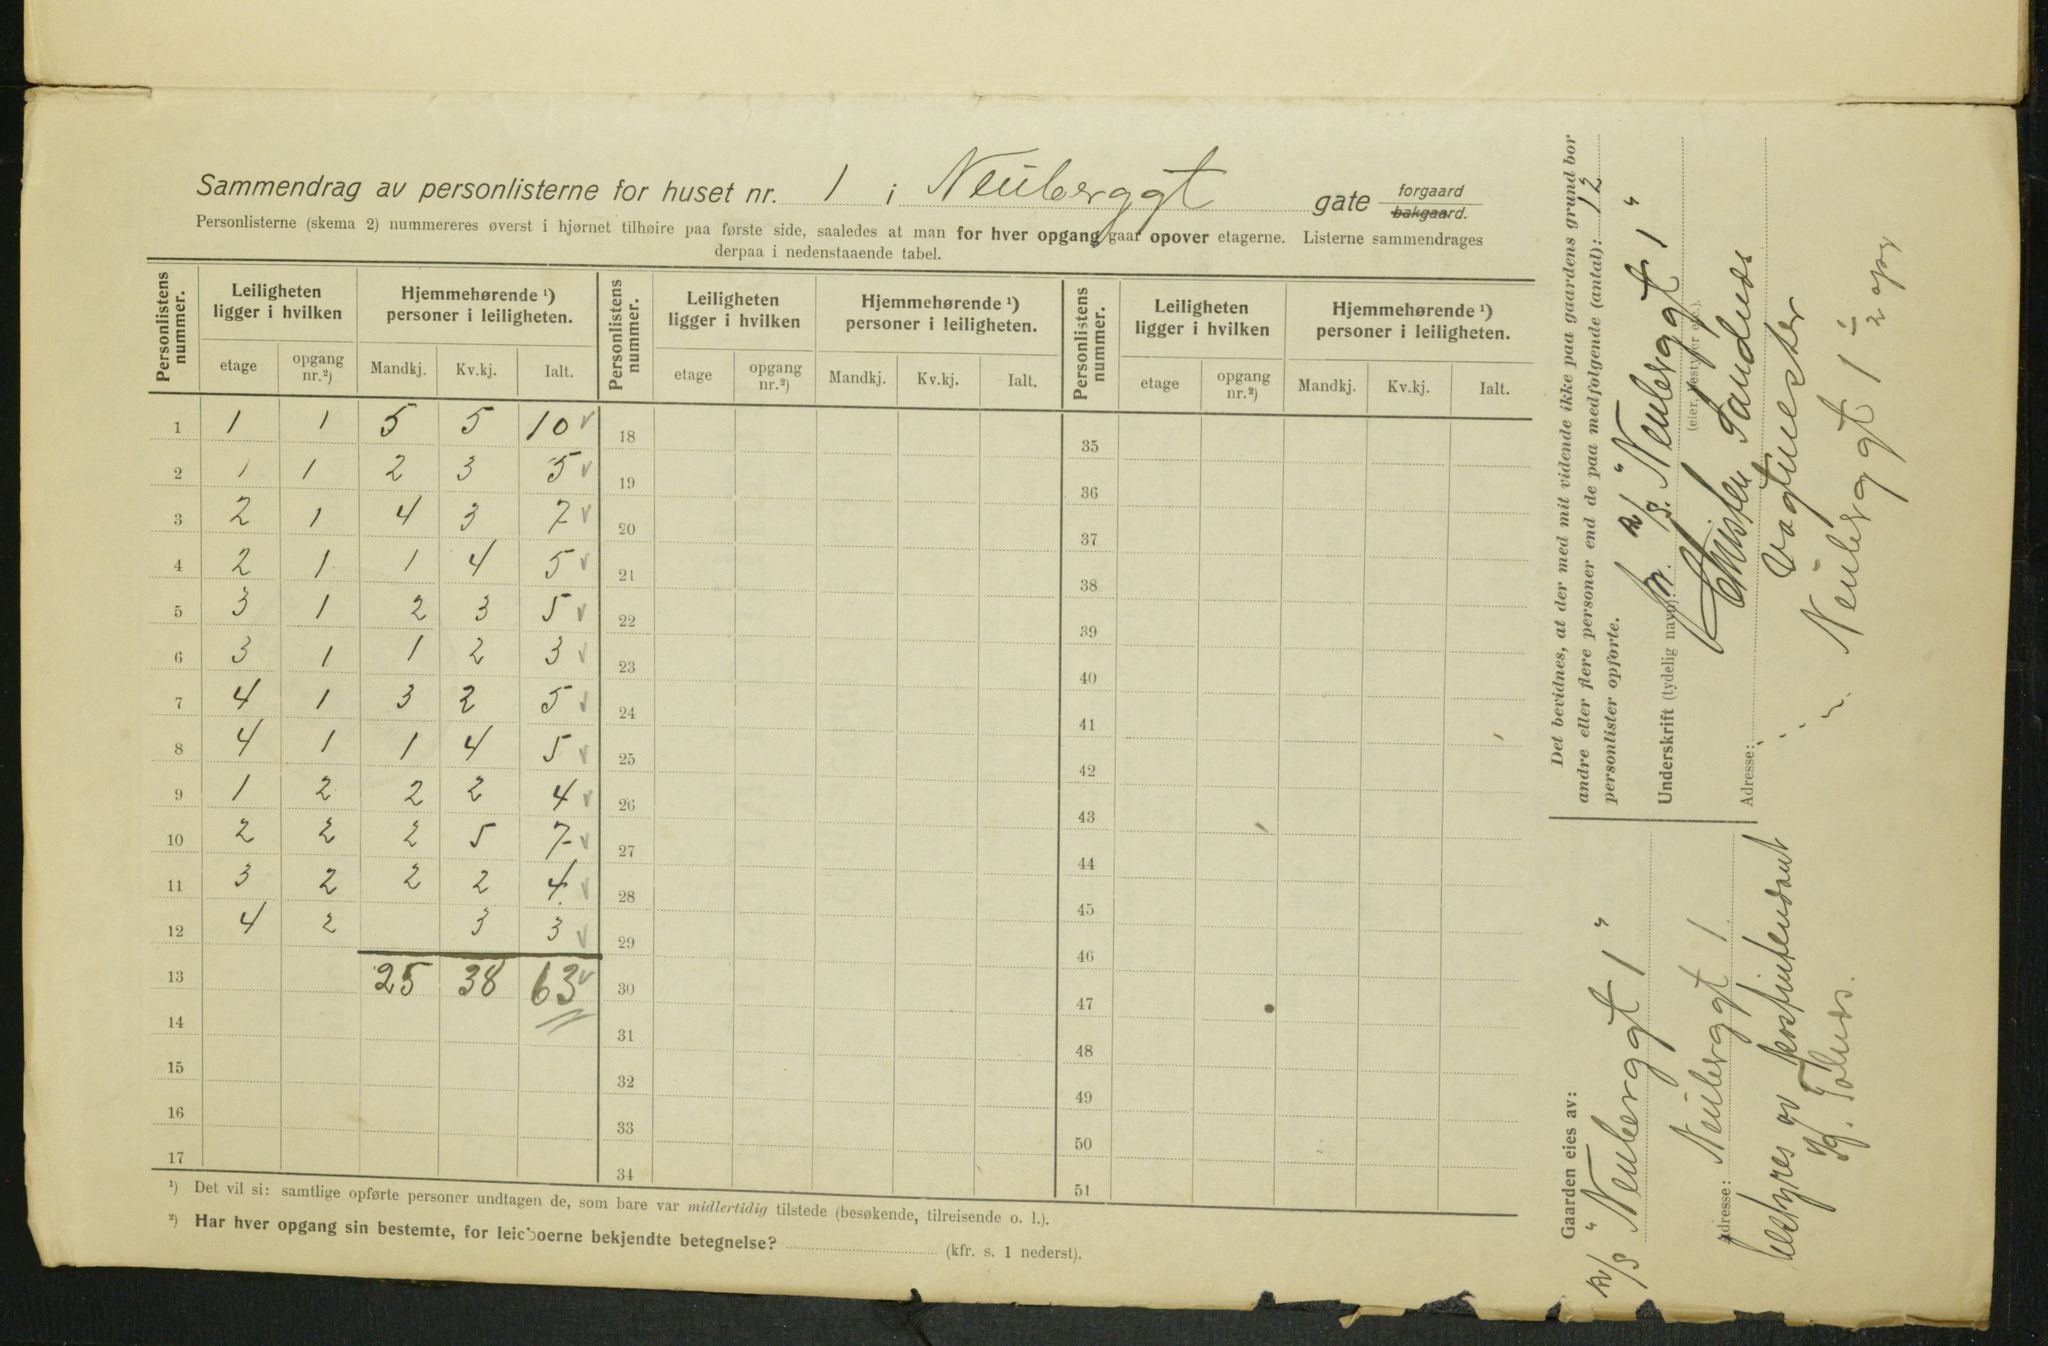 Sammendrag av personlisterne for huset nr. 1 i Neuberggt gate forgaard bakgaard.
Personlisterne (skema 2) nummereres øverst i hjørnet tilhøire paa første side, saaledes at man for hver opgang gaar opover etagerne. Listerne sammendrages
derpaa i nedenstaaende tabel.
Personlistens nummer. Leiligheten ligger i hvilken Hjemmehørende ¹) personer i leiligheten. Personlistens nummer. Leiligheten ligger i hvilken Hjemmehørende ¹) personer i leiligheten. Personlistens nummer. Leiligheten ligger i hvilken Hjemmehørende ¹) personer i leiligheten.
etage opgang nr.²) Mandkj. Kv.kj. Ialt. etage opgang nr.²) Mandkj. Kv.kj. Ialt. etage opgang nr.²) Mandkj. Kv.kj. Ialt.
1 1 1 5 5 10 18 35
2 1 1 2 3 5 19 36
3 2 1 4 3 7 20 37
4 2 1 1 4 5 21 38
5 3 1 2 3 5 22 39
6 3 1 1 2 3 23 40
7 4 1 3 2 5 24 41
8 4 1 1 4 5 25 42
9 1 2 2 2 4 26 43
10 2 2 2 5 7 27 44
11 3 2 2 2 4 28 45
12 4 2 3 3 29 46
13 25 38 63 30 47
14 31 48
15 32 49
16 33 50
17 34 51
¹) Det vil si: samtlige opførte personer undtagen de, som bare var midlertidig tilstede (besøkende, tilreisende o. l.).
²) Har hver opgang sin bestemte, for leieboerne bekjendte betegnelse? (kfr. s. 1 nederst).
Det bevidnes, at der med mit vidende ikke paa gaardens grund bor
andre eller flere personer end de paa medfølgende (antal): 12
personlister opførte.
"Neuberggt 1"
Underskrift (tydelig navn):
(eier, bestyrer etc.).
Vagtmester
Adresse:
Neuberggt 1
2 opg
Gaarden eies av:
A/S "Neuberggt 1"
Adresse: Neuberggt 1
bestyres av